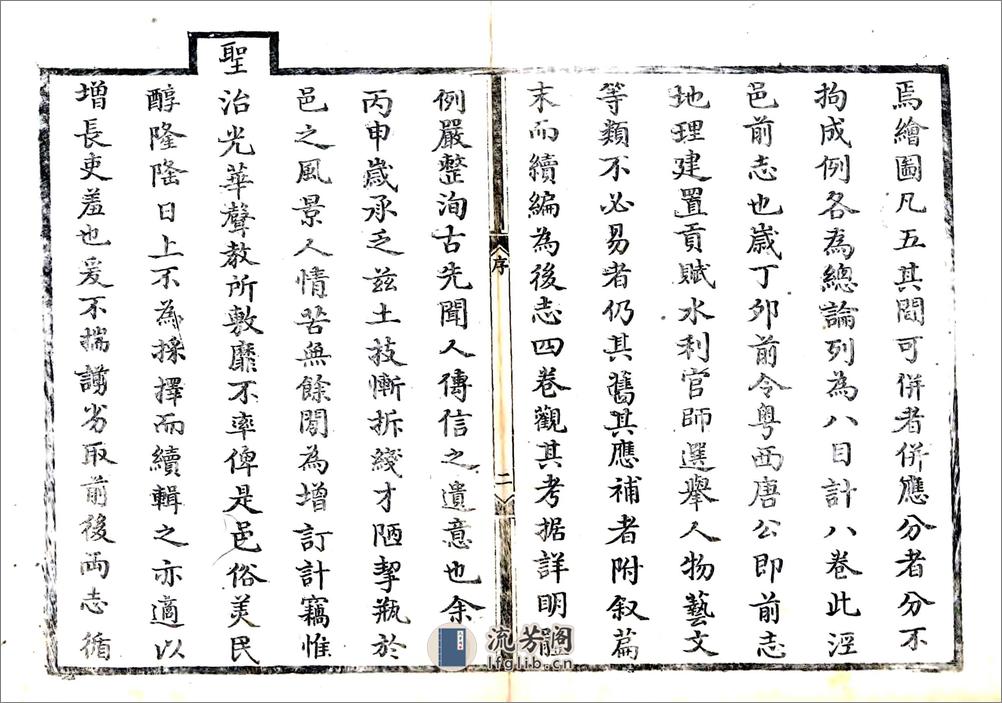 焉繪圖凡五其間可併者併應分者分不
拘成例各為總論列為八目計八卷此涇
邑前志也歲丁卯前令粵西唐公即前志
地理建置貢賦水利官師選舉人物藝文
等類不必易者仍其舊其應補者附叙篇
末而續編為後志四卷觀其考据詳明體
序
二
例嚴整洵古先聞人傳信之遺意也余
丙申歲承乏茲土技慚拆綫才陋挈瓶於
邑之風景人情苦無餘閒為增訂計竊惟
聖
治光華聲教所敷靡不率俾是邑俗美民
醇隆隆日上不為採擇而續輯之亦適以
增長吏羞也爰不揣謭劣取前後兩志循
流芳閣
lfglib.cn